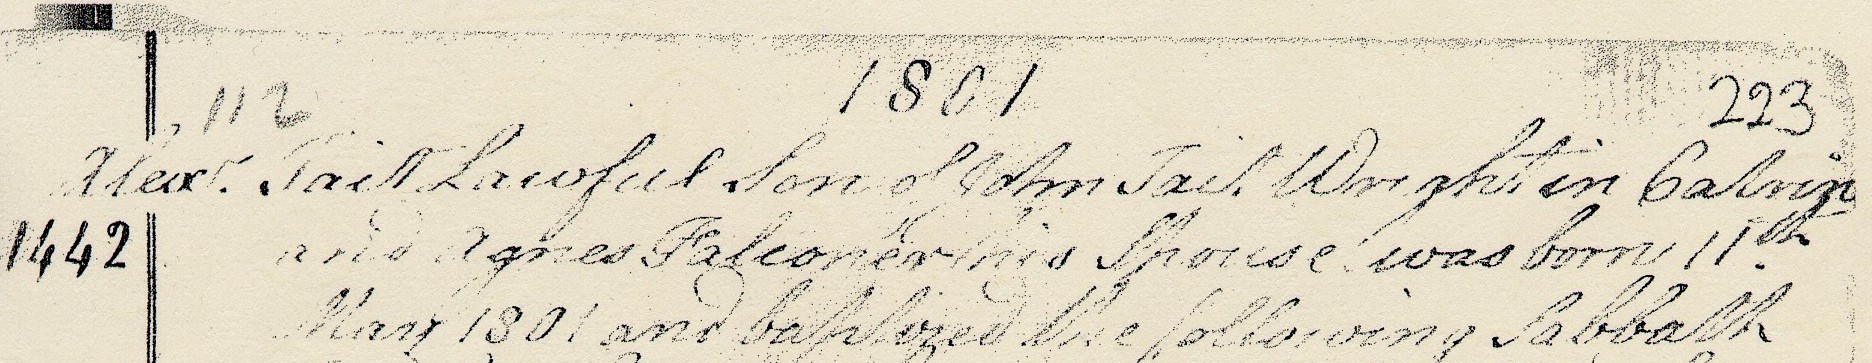 1801
112
223
Alexr. Tait Lawful Son of John Tait Wright in Catrin
1442
and Agnes Falconer his Spouse was born 11th
May 1801 and baptized the following Sabbath